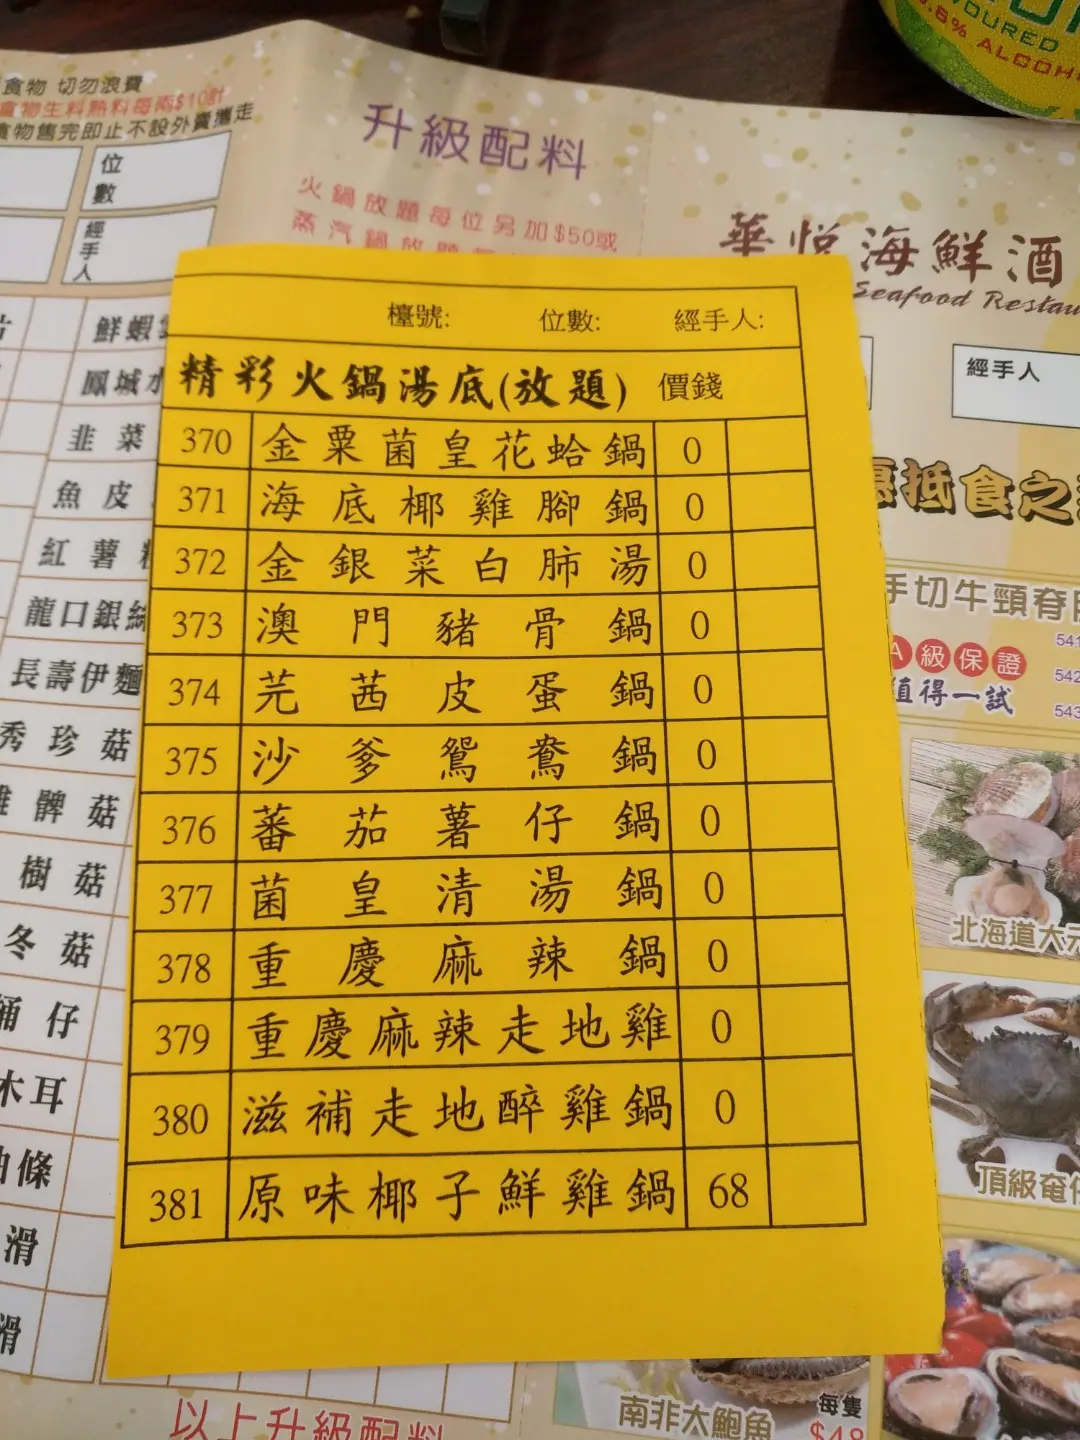 食物 切勿浪費
食物生料熟料每兩$10計
食物售完即止不設外賣攜走
位數
經手人
升級配料
火鍋放題每位另加$50或
蒸汽鍋放題每
華悦海鮮酒
Seafood Restau
經手人
VOURED
.6% ALCOH
檯號: 位數: 經手人:
精彩火鍋湯底(放題) 價錢
370 金粟菌皇花蛤鍋 0
371 海底椰雞腳鍋 0
372 金銀菜白肺湯 0
373 澳門豬骨鍋 0
374 芫茜皮蛋鍋 0
375 沙爹鴛鴦鍋 0
376 蕃茄薯仔鍋 0
377 菌皇清湯鍋 0
378 重慶麻辣鍋 0
379 重慶麻辣走地雞 0
380 滋補走地醉雞鍋 0
381 原味椰子鮮雞鍋 68
鮮蝦
鳳城水
韭菜
魚皮
紅薯
龍口銀絲
長壽伊麵
秀珍菇
雞髀菇
樹菇
冬菇
桶仔
木耳
條
滑
滑
以上升級配料
抵食之
手切牛頸脊
A級保證
值得一試
541
542
543
北海道大元
頂級奄仔
南非大鮑魚
每隻
$48